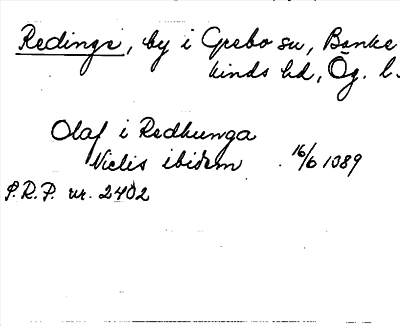 Redinge, by i Grebo su, Banke
kinds hd, Ög. l.
Olaf i Redhunga
Niclis ibidem 16/6 1389
P.R.P. nr. 2402